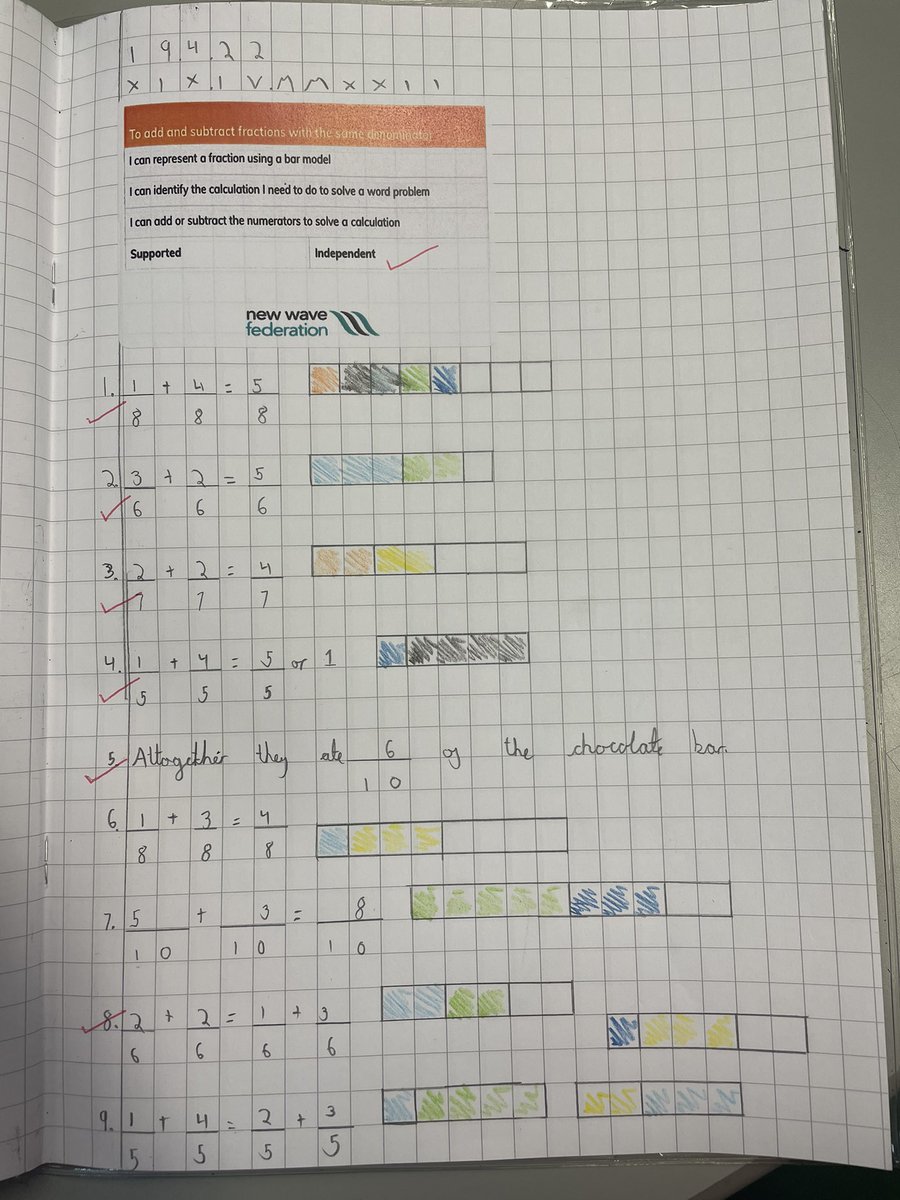 1 9.4.22
X I X.I V.M M X X I I
To add and subtract fractions with the same denominator
I can represent a fraction using a bar model
I can identify the calculation I need to do to solve a word problem
I can add or subtract the numerators to solve a calculation
Supported Independent
new wave
federation
1. 1/8 + 4/8 = 5/8
2. 3/6 + 2/6 = 5/6
3. 2/7 + 2/7 = 4/7
4. 1/5 + 4/5 = 5/5 or 1
5. Altogether they ate 6/10 of the chocolate bar.
6. 1/8 + 3/8 = 4/8
7. 5/10 + 3/10 = 8/10
8. 2/6 + 2/6 = 1/6 + 3/6
9. 1/5 + 4/5 = 2/5 + 3/5